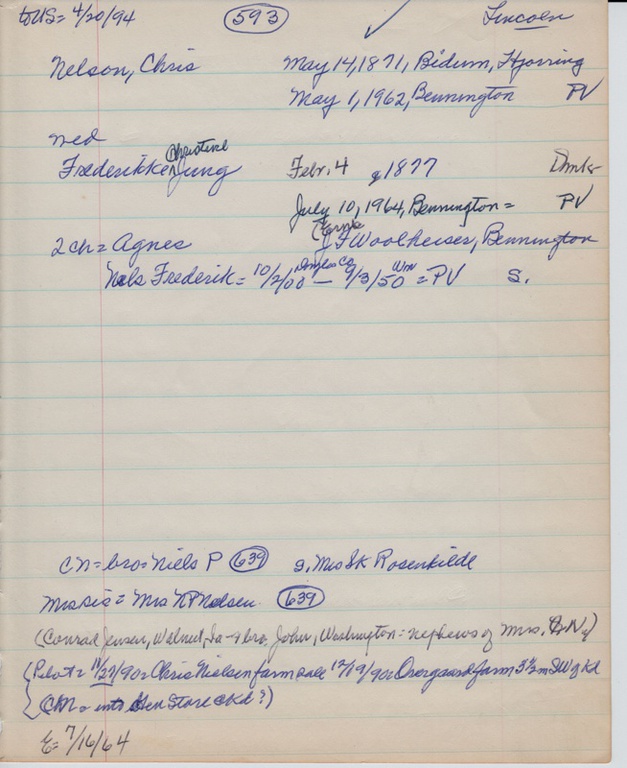 to US = 4/20/94 593 Lincoln
Nelson, Chris May 14, 1871, Bidum, Hjorring
May 1, 1962, Bennington PV
med
Frederikke Christine Jung Febr. 4 1877 Dmk
July 10, 1964, Bennington = PV
2 ch = Agnes J F Woolheiser, Bennington
Nels Frederik = 10/2/00 Douglas Co — 9/3/50 Wn = PV S.
CN = bro = Niels P 639 s, Mrs SK Rosenkilde
Mrs sis = Mrs N P Nelsen 639
(Conrad Jensen, Walnut, Ia - & bro, John, Washington = nephews of Mrs. CN)
(Pilot = 11/27/902 Chris Nielsen farm sale 12/19/902 Overgaard farm 3½ m SW of Kd
CN = into Gen Store CKd?)
E = 7/16/64